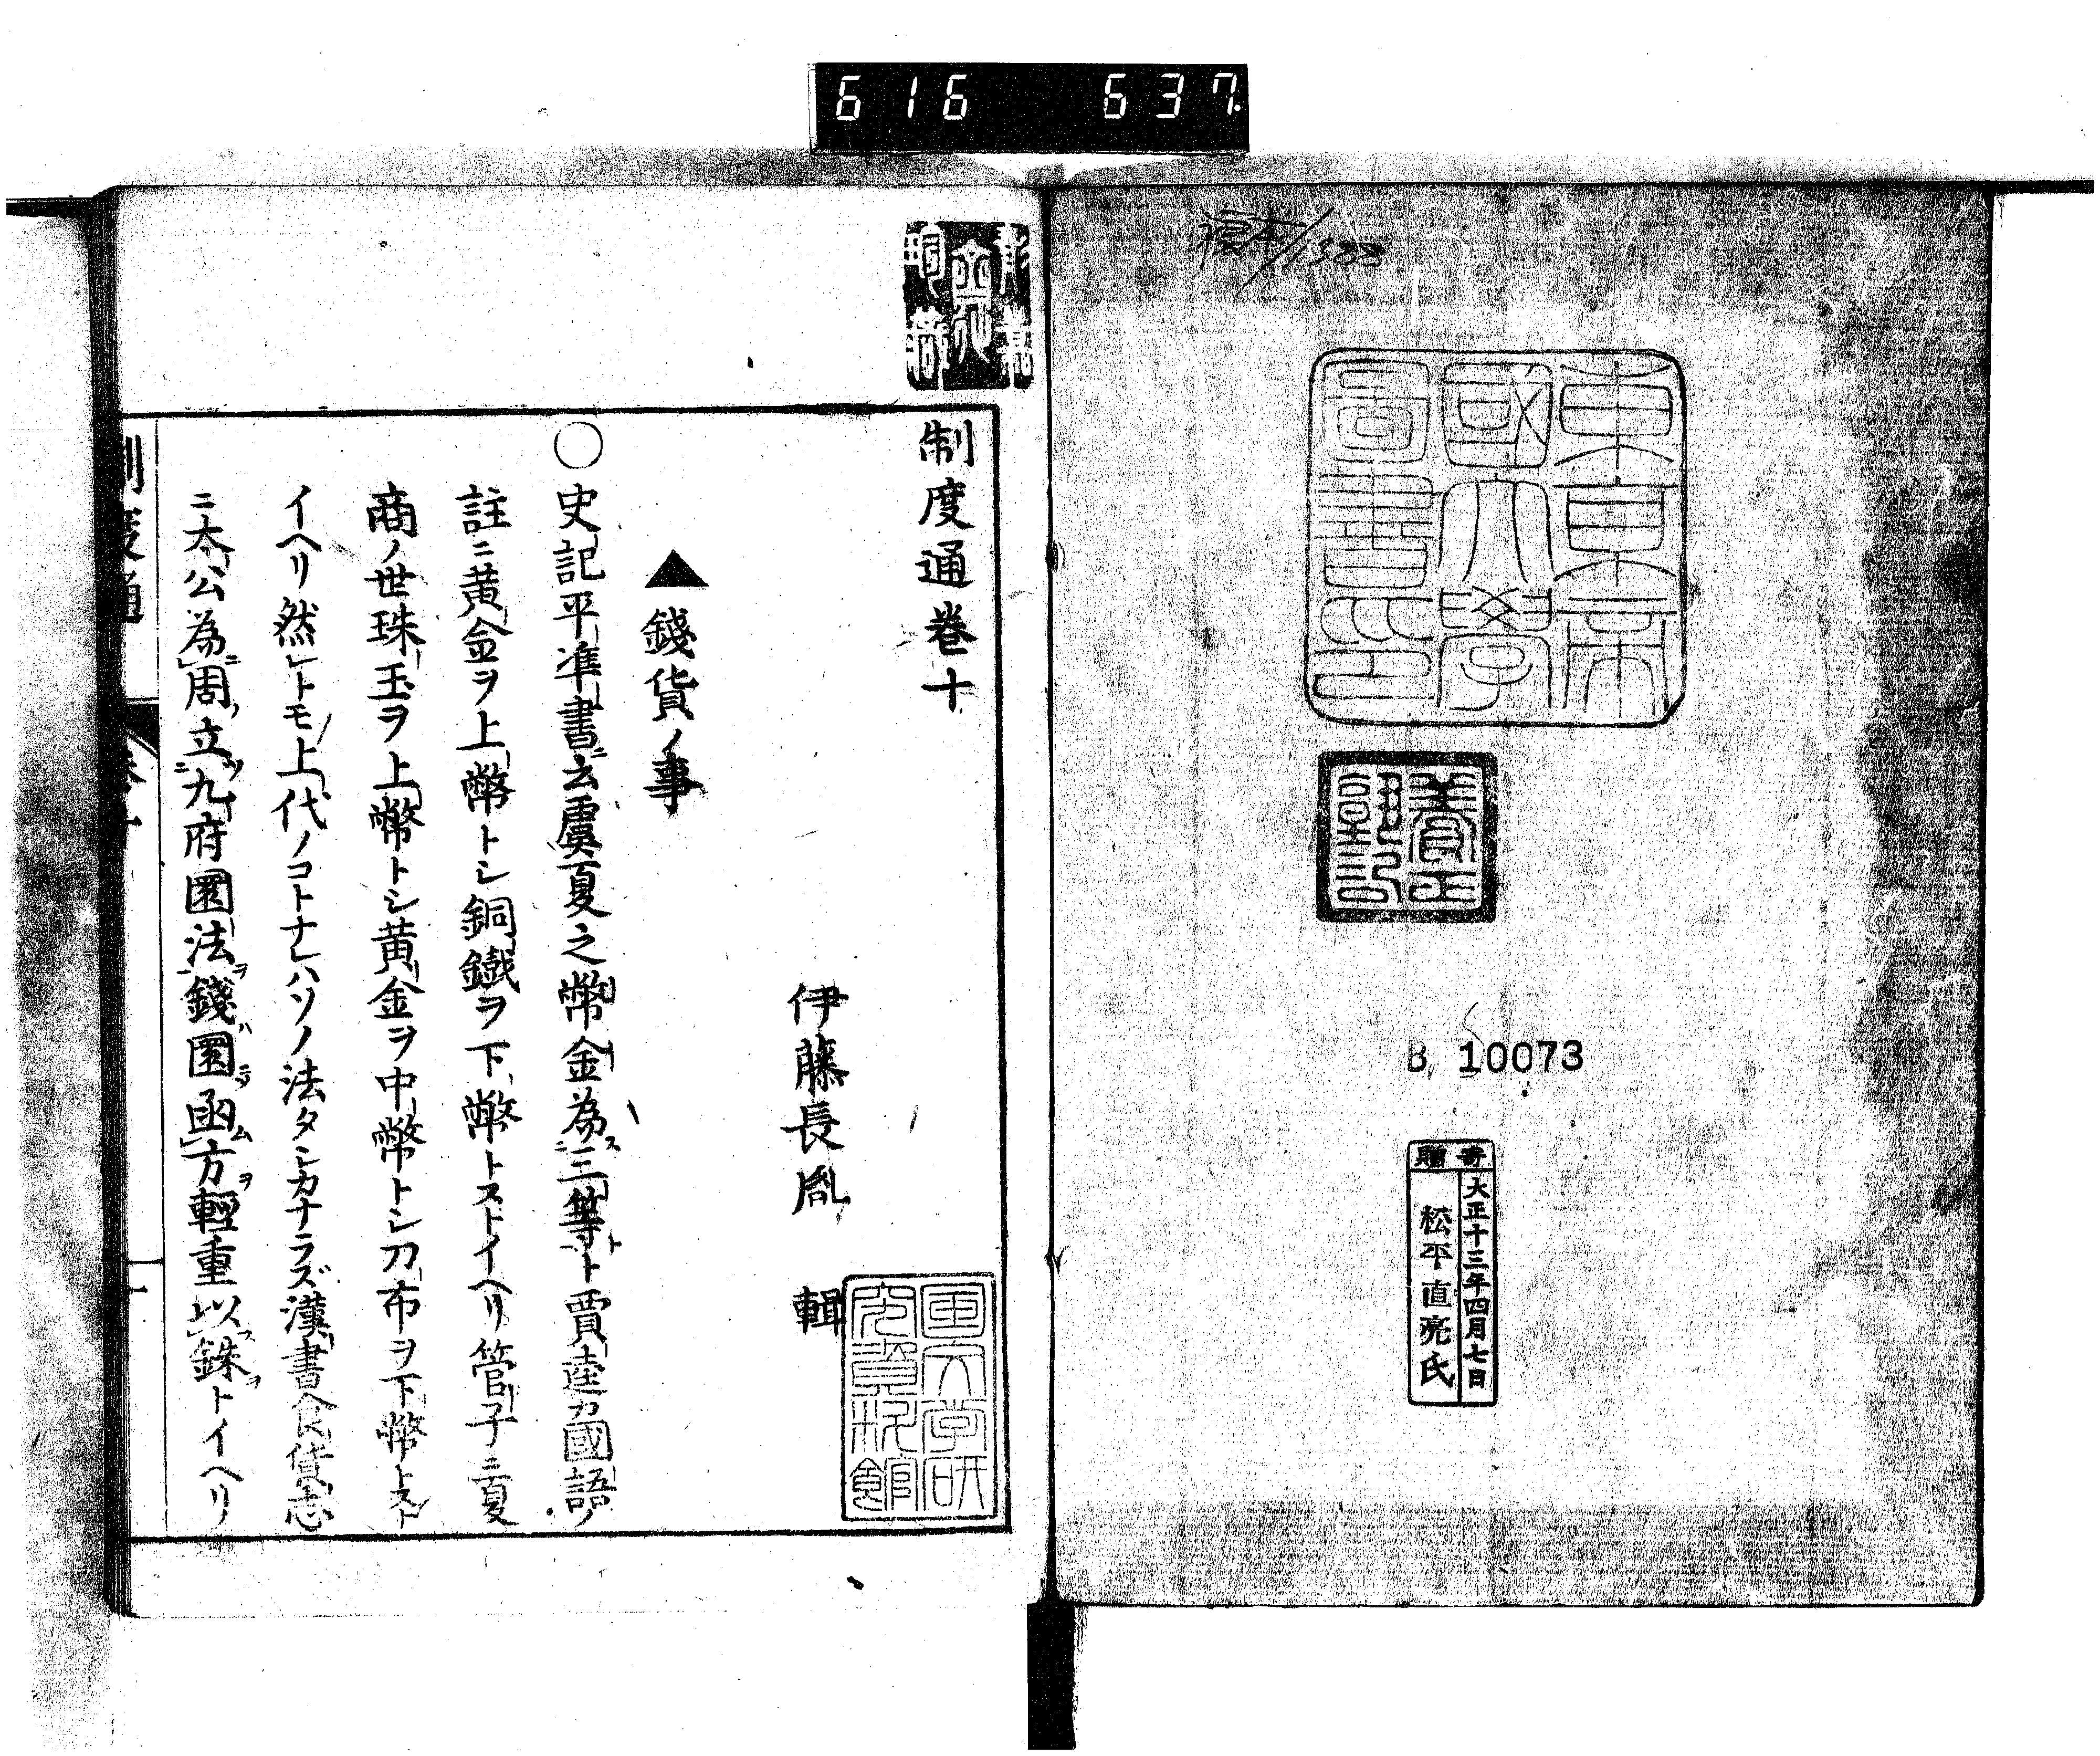 616 637
東京帝
國大學
圖書之印
B 10073
寄贈
大正十三年四月七日
松平直亮氏
制度通卷十
伊藤長胤 輯
▲錢貨ノ事
○史記平準書ニ云虞夏之幣金為三等ト賈逵カ國語ノ
註ニ黄金ヲ上幣トシ銅鐵ヲ下幣トストイヘリ管子ニ夏
商ノ世珠玉ヲ上幣トシ黄金ヲ中幣トシ刀布ヲ下幣トスト
イヘリ然レトモ上代ノコトナレハソノ法タシカナラズ漢書食貨志
ニ太公為周立九府圜法錢圜函方輕重以銖トイヘリ